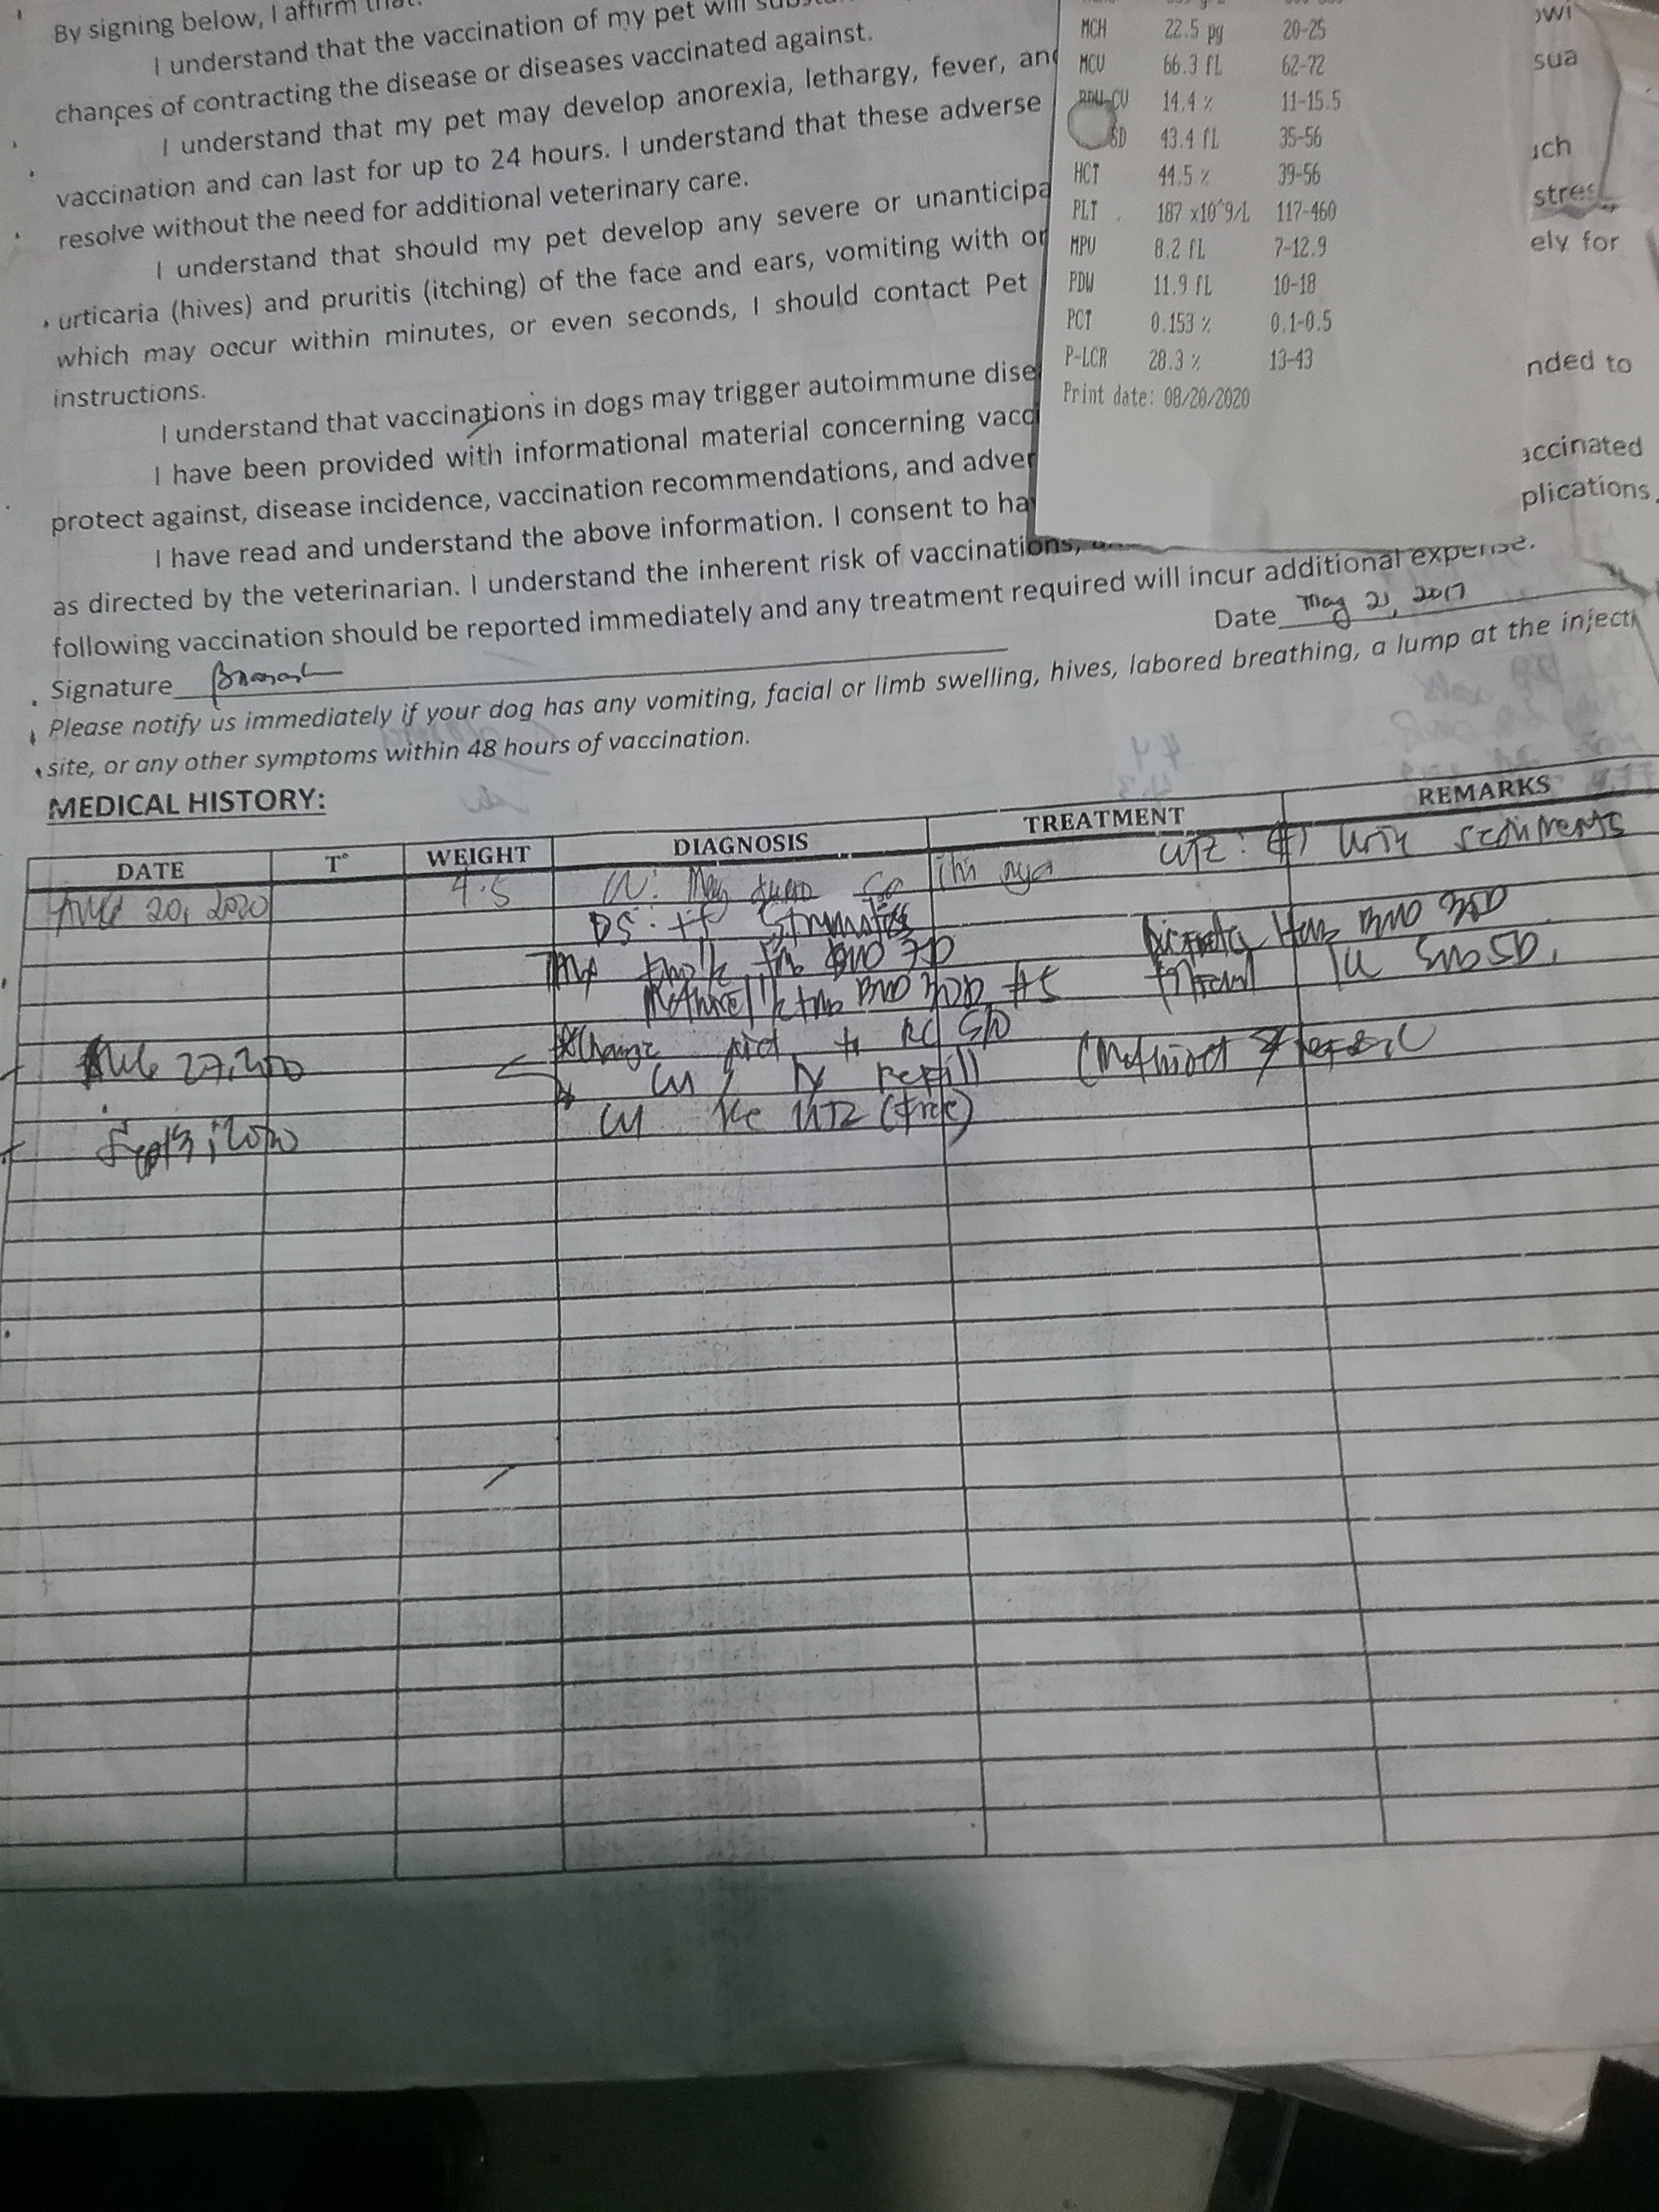 By signing below, I affirm that:
I understand that the vaccination of my pet will
chances of contracting the disease or diseases vaccinated against.
I understand that my pet may develop anorexia, lethargy, fever, and
vaccination and can last for up to 24 hours. I understand that these adverse
resolve without the need for additional veterinary care.
I understand that should my pet develop any severe or unanticipa
urticaria (hives) and pruritis (itching) of the face and ears, vomiting with or
which may occur within minutes, or even seconds, I should contact Pet
instructions.
I understand that vaccinations in dogs may trigger autoimmune dise
I have been provided with informational material concerning vacc
protect against, disease incidence, vaccination recommendations, and adver
I have read and understand the above information. I consent to ha
as directed by the veterinarian. I understand the inherent risk of vaccinations,
following vaccination should be reported immediately and any treatment required will incur additional expense.
Signature Date May 21, 2017
Please notify us immediately if your dog has any vomiting, facial or limb swelling, hives, labored breathing, a lump at the injecti
site, or any other symptoms within 48 hours of vaccination.
MCH 22.5 pg 20-25
MCV 66.3 fL 62-72
RDW-CV 14.4 % 11-15.5
SD 43.4 fL 35-56
HCT 44.5 % 39-56
PLT 187 x10^9/L 117-460
MPV 8.2 fL 7-12.9
PDW 11.9 fL 10-18
PCT 0.153 % 0.1-0.5
P-LCR 28.3 % 13-43
Print date: 08/20/2020
owi
sua
uch
stres
ely for
nded to
accinated
plications,
MEDICAL HISTORY:
DATE T° WEIGHT DIAGNOSIS TREATMENT REMARKS
Aug 20, 2020 4.5 May sa ihi nya UTZ: (+) sediments
DS:
#5
Aug 27, 2020 *Change diet to RC S/O
refill
Sept 3, 2020 UTZ (free)